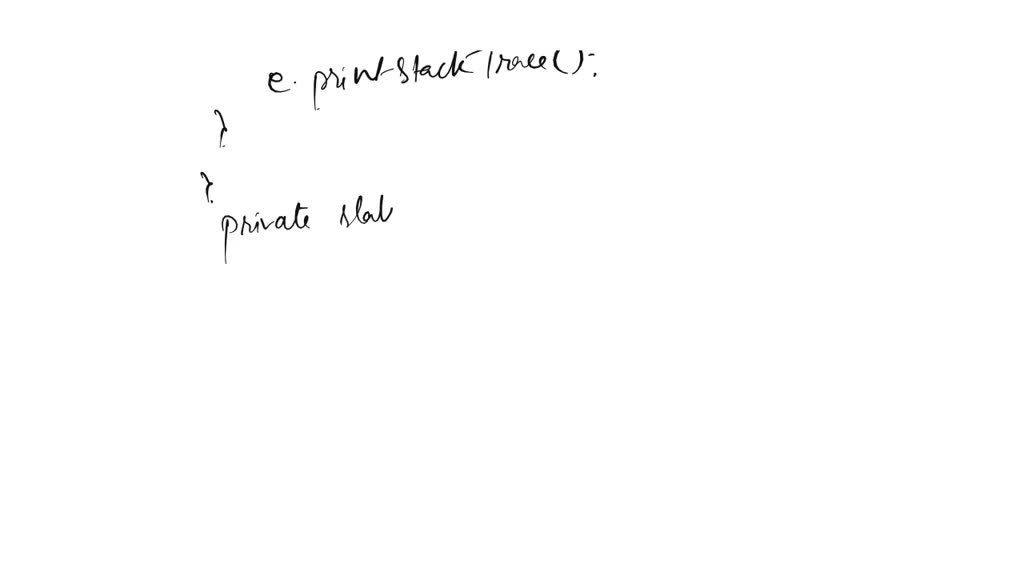 e. printStackTrace();
}
}
private stat